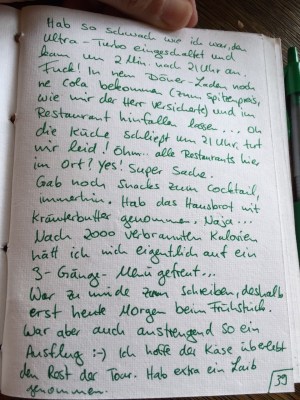 Hab so schwach wie ich war, den
Ultra-Turbo eingeschaltet und
kam um 2 Min. nach 21 Uhr an.
Fuck! In nem Döner-Laden noch
ne Cola bekommen (zum Spitzenpreis,
wie mir der Herr versicherte) und im
Restaurant hinfallen lassen... Oh
die Küche schließt um 21 Uhr, tut
mir leid! Öhm.. alle Restaurants hier
im Ort? Yes! Super Sache.
Gab noch Snacks zum Cocktail,
immerhin. Hab das Hausbrot mit
Kräuterbutter genommen. Naja...
Nach 2000 verbrannten Kalorien
hätt ich mich eigentlich auf ein
3-Gänge-Menü gefreut...
War zu müde zum Schreiben, deshalb
erst heute Morgen beim Frühstück.
War aber auch anstrengend so ein
Ausflug :-) Ich hoffe der Käse überlebt
den Rest der Tour. Hab extra ein Laib
genommen.
39